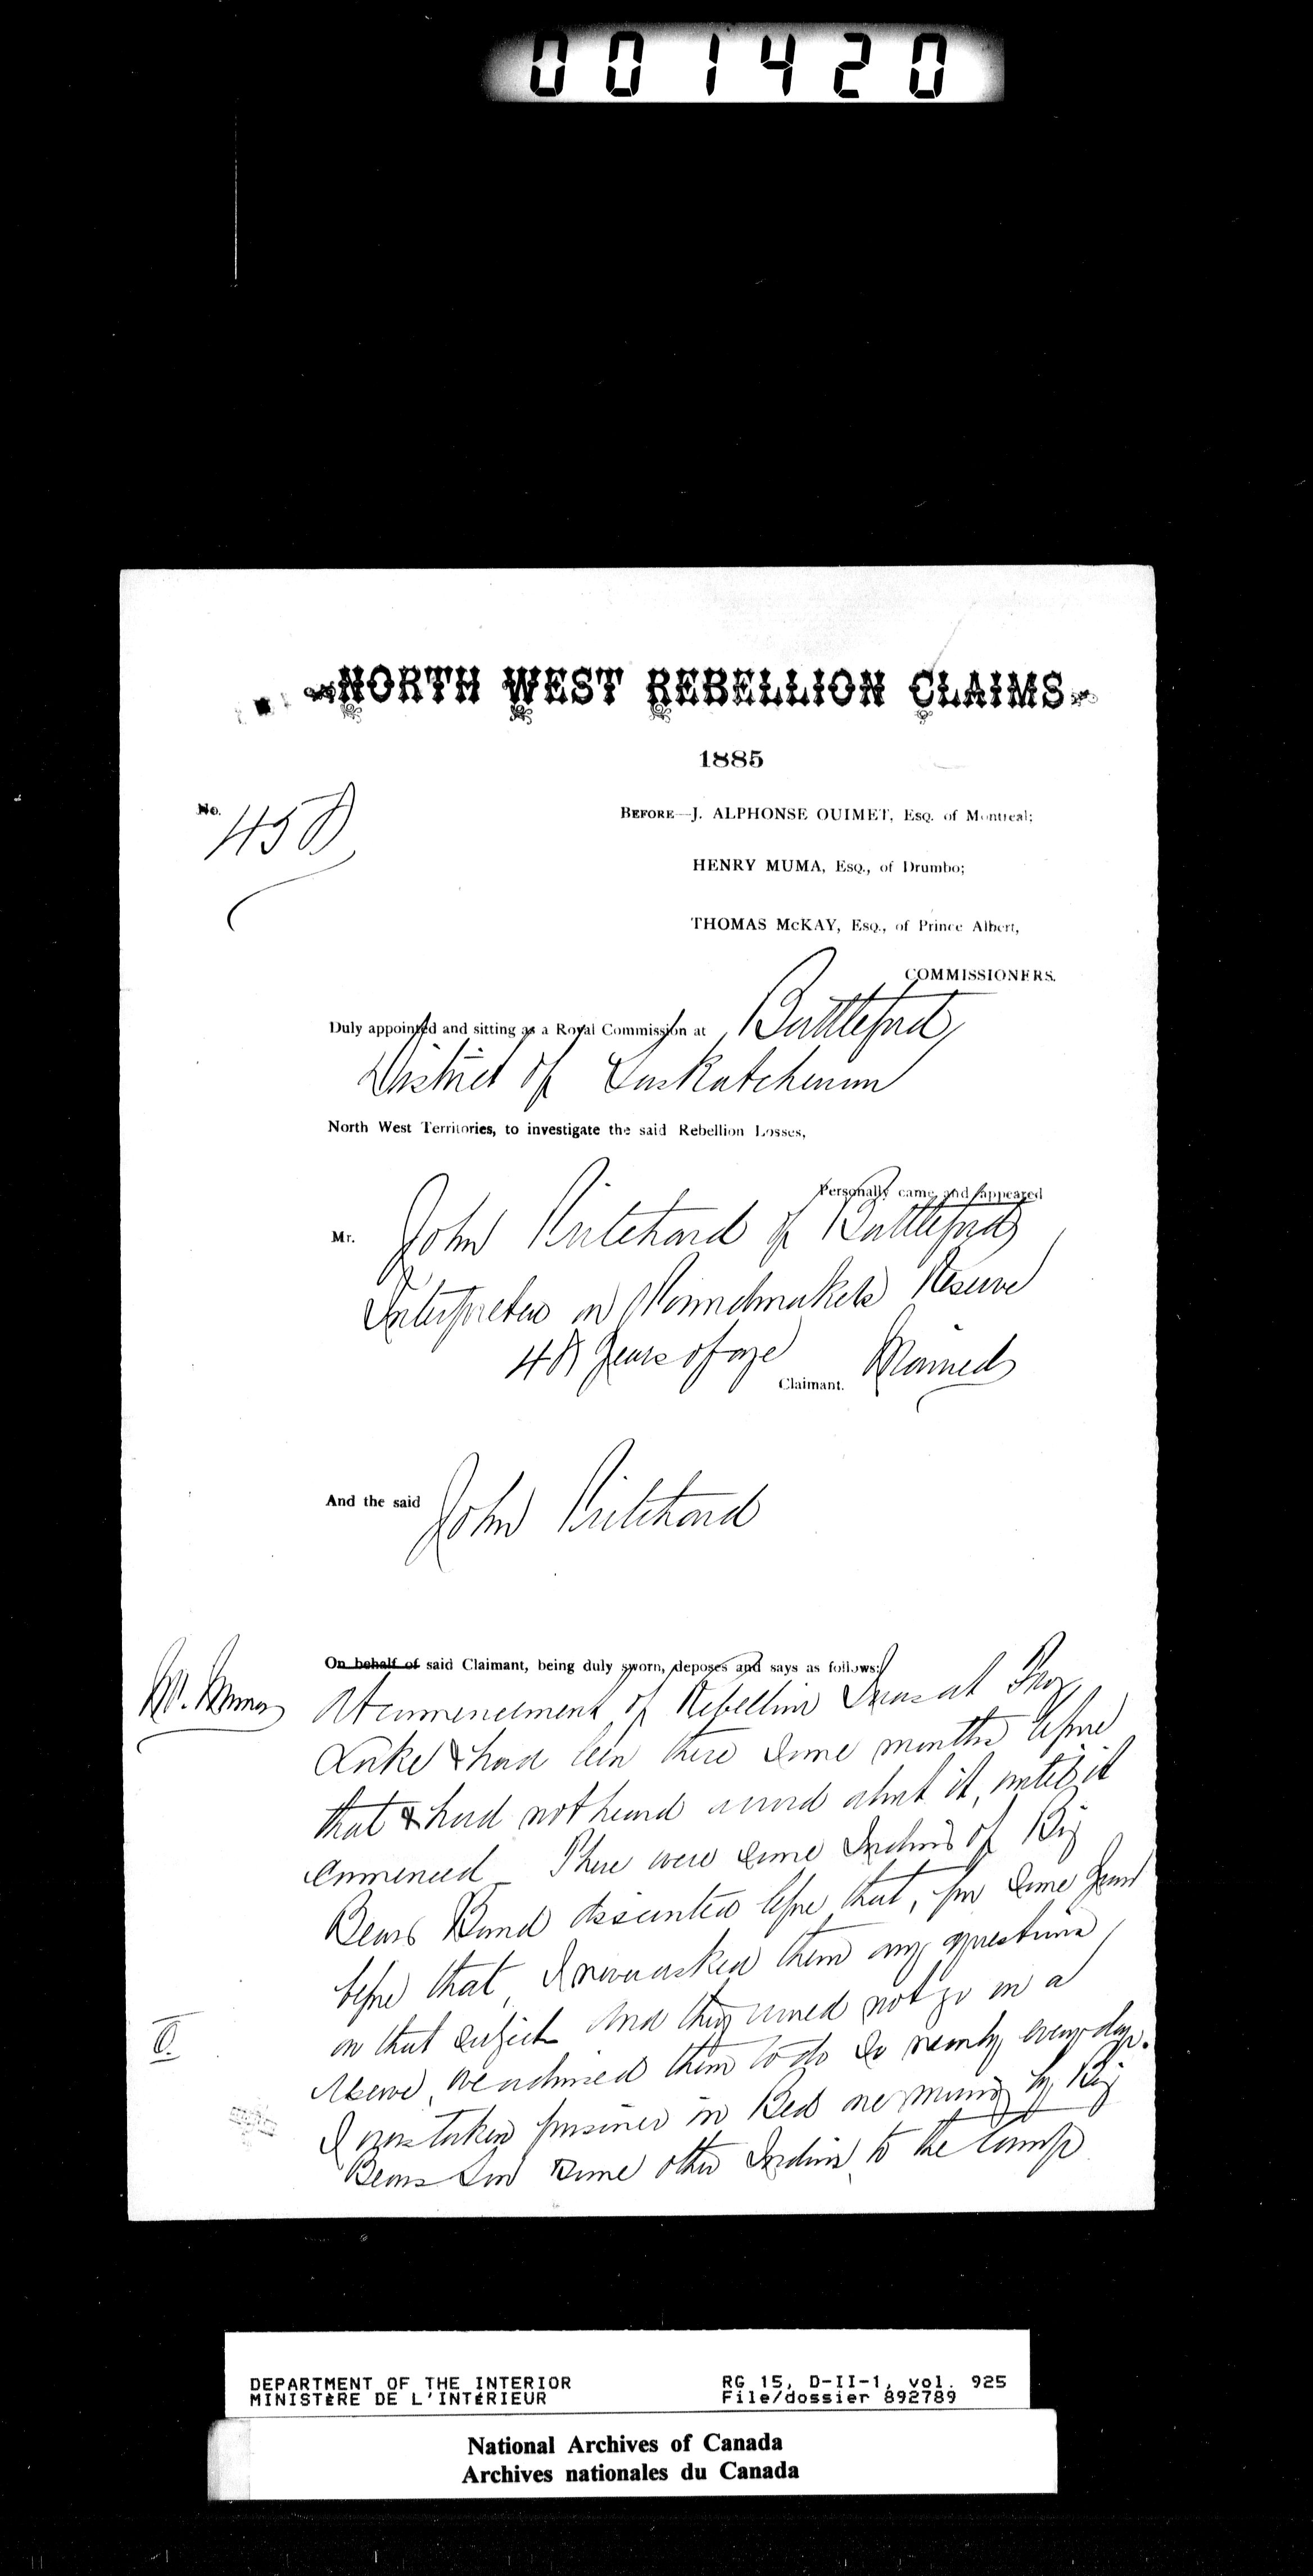 001420
NORTH WEST REBELLION CLAIMS
1885
No. 458
BEFORE—J. ALPHONSE OUIMET, Esq. of Montreal;
HENRY MUMA, Esq., of Drumbo;
THOMAS McKAY, Esq., of Prince Albert,
COMMISSIONERS.
Duly appointed and sitting as a Royal Commission at Battleford
District of Saskatchewan
North West Territories, to investigate the said Rebellion Losses,
Personally came and appeared
Mr. John Pritchard of Battleford
Interpreter on Poundmakers Reserve
48 Years of age Claimant. Married
And the said John Pritchard
On behalf of said Claimant, being duly sworn, deposes and says as follows:
Mr. Muma
At commencement of Rebellion I was at Frog
Lake & had been there some months before
that & had not heard a word about it, until it
commenced. There were some Indians of Big
Bears Band discontented before that, for some years
before that, I never asked them any questions
on that subject and they would not go on a
Reserve, we advised them to do so nearly every day.
I was taken prisoner in Bed one morning by Big
Bears Son & some other Indians to the Camp
DEPARTMENT OF THE INTERIOR
MINISTÈRE DE L'INTÉRIEUR
RG 15, D-II-1, vol. 925
File/dossier 892789
National Archives of Canada
Archives nationales du Canada